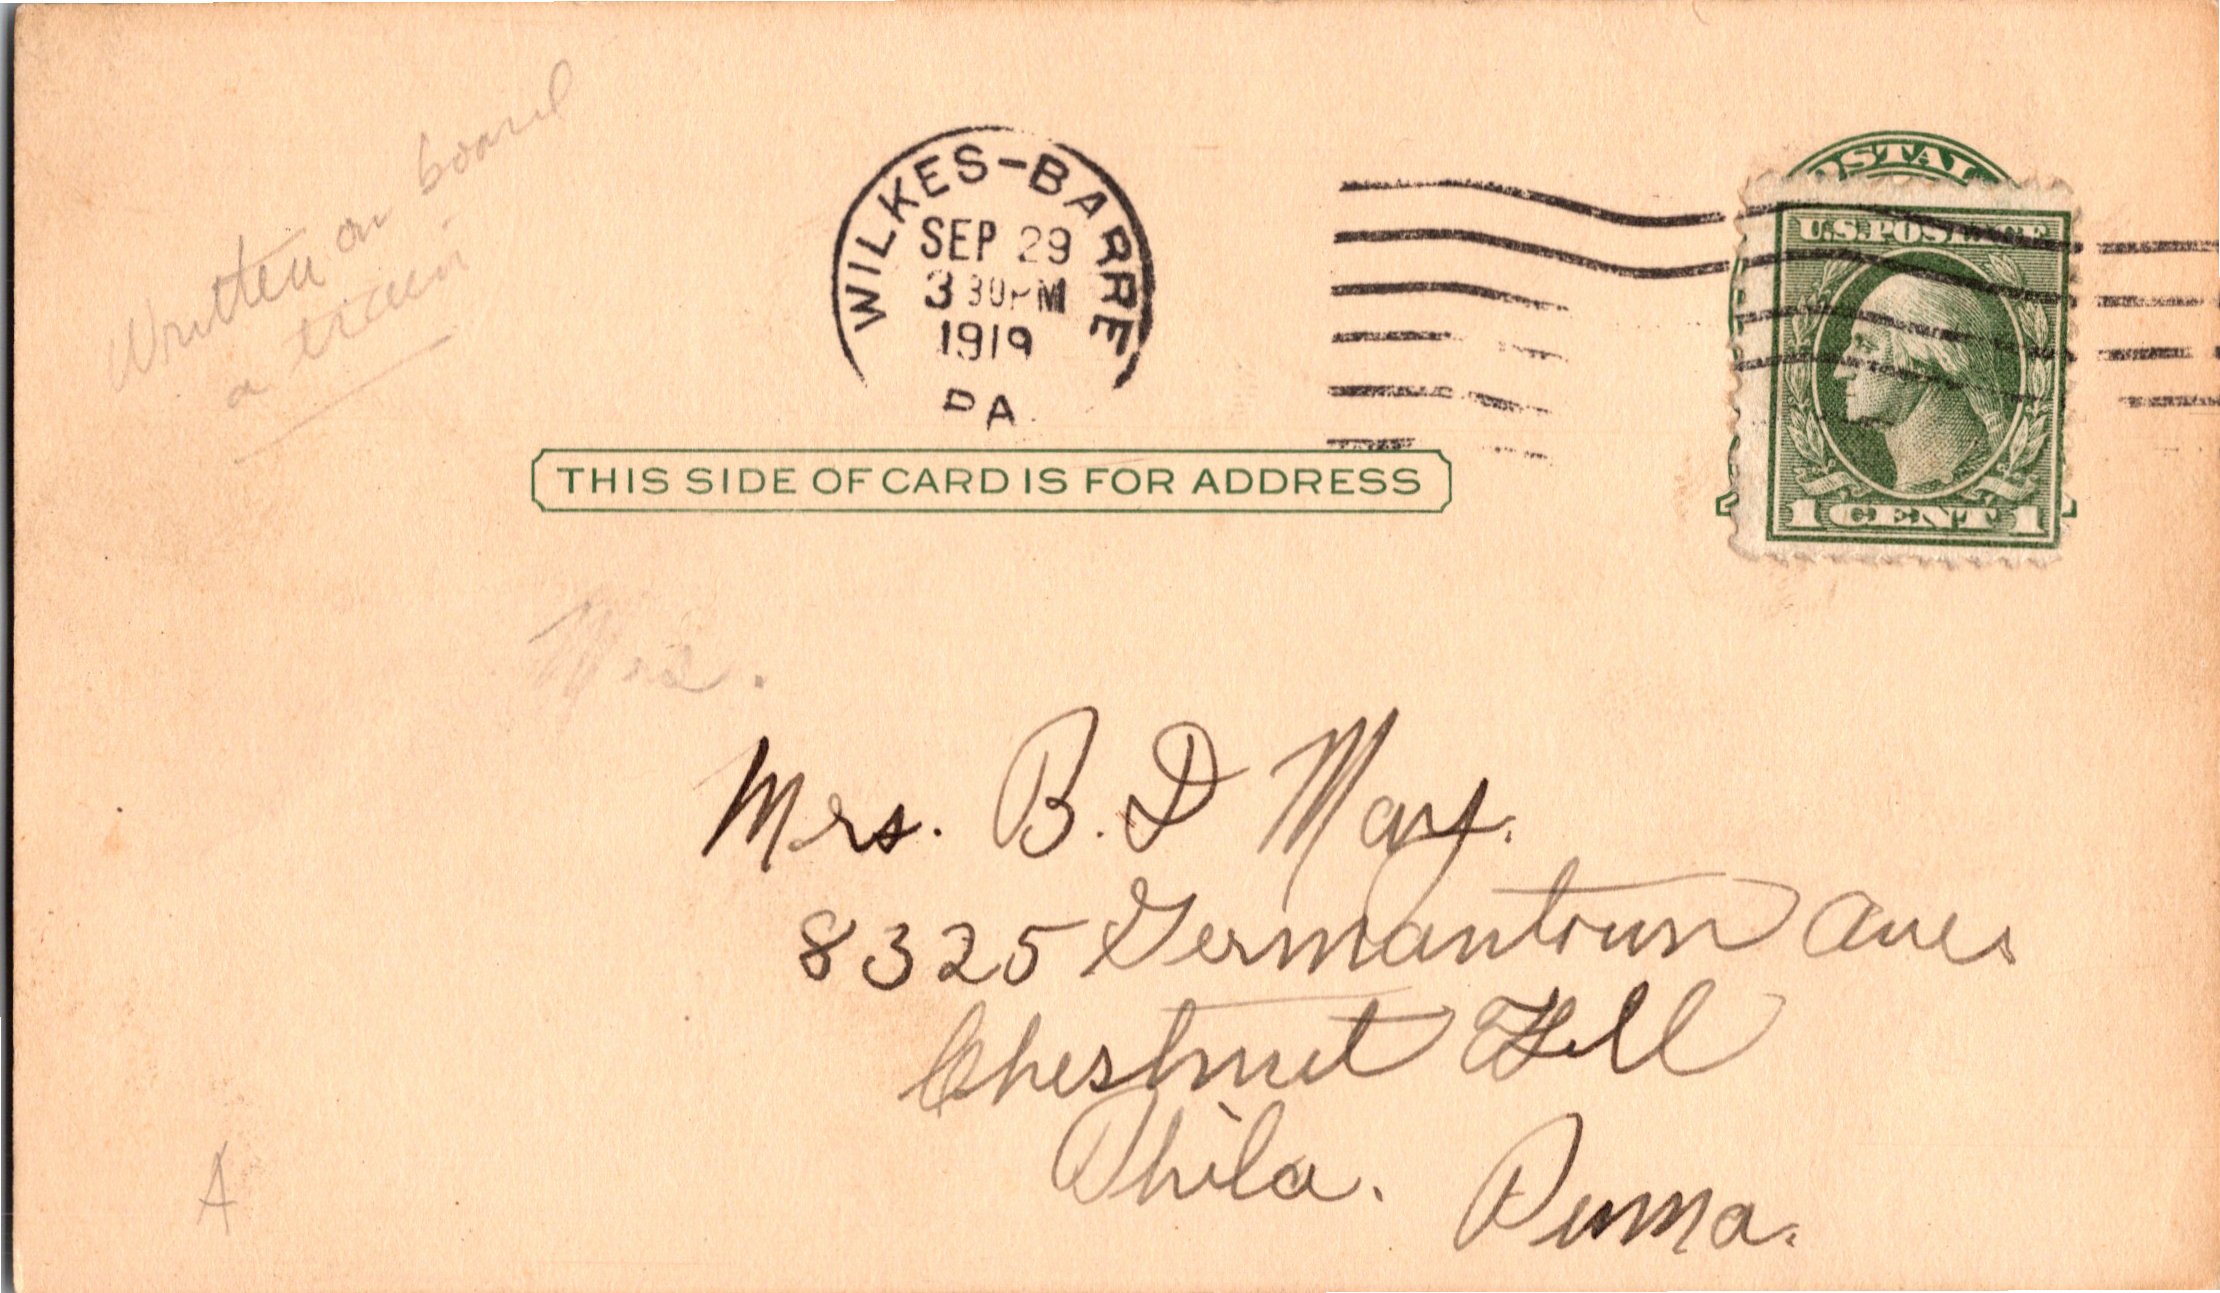 Written on board
a train
WILKES-BARRE
SEP 29
3 30PM
1919
PA.
POSTAL
U.S. POSTAGE
1 CENT 1
THIS SIDE OF CARD IS FOR ADDRESS
Mrs.
Mrs. B. D May.
8325 Germantown Ave.
Chestnut Hill
Phila. Penna.
A